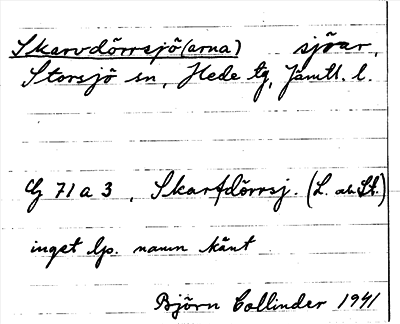 Skarvdörrsjö(arna) sjöar,
Storsjö sn, Hede tg, Jämtl. l.
G 71 a 3, Skarfdörrsj. (L. och St.)
inget lp. namn känt
Björn Collinder 1941